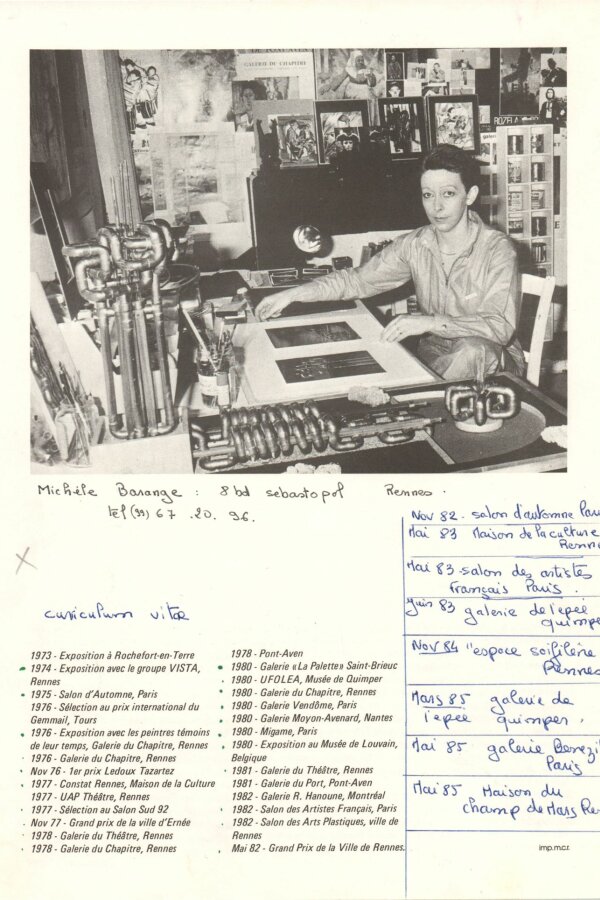 GALERIE DU CHAPITRE
Michèle Barange : 8 bd sebastopol Rennes.
tel (99) 67 .20 .96.
Nov 82. salon d'automne
Mai 83 Maison de la culture
Mai 83 salon des artistes
Français Paris.
Juin 83 galerie de l'epée
Nov 84 "espace
Rennes
Mars 85 galerie de
l'epée quimper.
Mai 85 galerie
Paris
Mai 85 Maison du
champ de Mars
curiculum vitae
1973 - Exposition à Rochefort-en-Terre
1974 - Exposition avec le groupe VISTA,
Rennes
1975 - Salon d'Automne, Paris
1976 - Sélection au prix international du
Gemmail, Tours
1976 - Exposition avec les peintres témoins
de leur temps, Galerie du Chapitre, Rennes
1976 - Galerie du Chapitre, Rennes
Nov 76 - 1er prix Ledoux Tazartez
1977 - Constat Rennes, Maison de la Culture
1977 - UAP Théâtre, Rennes
1977 - Sélection au Salon Sud 92
Nov 77 - Grand prix de la ville d'Ernée
1978 - Galerie du Théâtre, Rennes
1978 - Galerie du Chapitre, Rennes
1978 - Pont-Aven
1980 - Galerie «La Palette» Saint-Brieuc
1980 - UFOLEA, Musée de Quimper
1980 - Galerie du Chapitre, Rennes
1980 - Galerie Vendôme, Paris
1980 - Galerie Moyon-Avenard, Nantes
1980 - Migame, Paris
1980 - Exposition au Musée de Louvain,
Belgique
1981 - Galerie du Théâtre, Rennes
1981 - Galerie du Port, Pont-Aven
1982 - Galerie R. Hanoune, Montréal
1982 - Salon des Artistes Français, Paris
1982 - Salon des Arts Plastiques, ville de
Rennes
Mai 82 - Grand Prix de la Ville de Rennes.
imp.m.c.r.